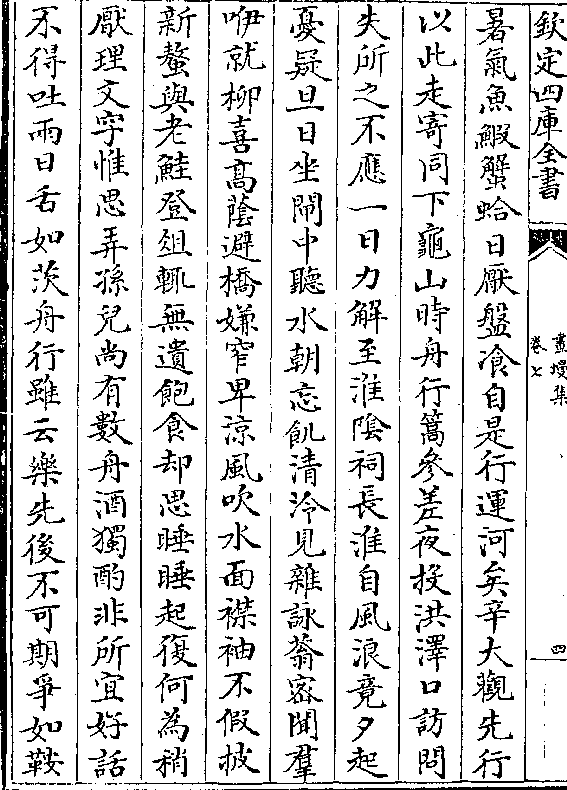 欽定四庫全書
畫墁集
卷七
四
暑氣魚鰕蟹蛤日厭盤飡自是行運河矣辛大觀先行
以此走寄同下龜山時舟行篙參差夜投洪澤口訪問
失所之不應一日力解至淮陰祠長淮自風浪竟夕起
憂疑旦日坐閘中聽水朝忘飢清泠見雜詠蓊密聞羣
咿就柳喜高蔭避橋嫌窄卑涼風吹水面襟袖不假披
新螯與老鮭登俎輒無遺飽食却思睡睡起復何為稍
厭理文字惟思弄孫兒尚有數舟酒獨酌非所宜好話
不得吐兩日舌如茨舟行雖云樂先後不可期爭如鞍